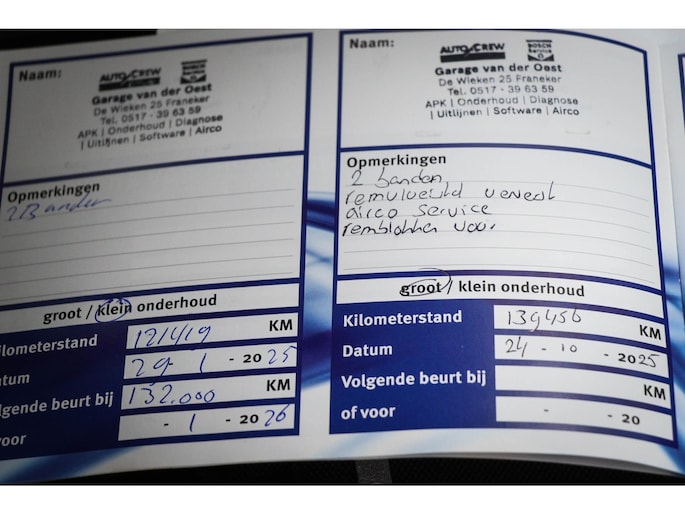 Naam:
AUTO CREW
BOSCH
Service
Garage van der Oest
De Wieken 25 Franeker
Tel. 0517 - 39 63 59
APK | Onderhoud | Diagnose
| Uitlijnen | Software | Airco
Opmerkingen
2 Banden
groot / klein onderhoud
ilometerstand KM
atum 29 - 1 - 2025
lgende beurt bij 132.000 KM
voor - 1 - 2026
Naam:
AUTO CREW
BOSCH
Service
Garage van der Oest
De Wieken 25 Franeker
Tel. 0517 - 39 63 59
APK | Onderhoud | Diagnose
| Uitlijnen | Software | Airco
Opmerkingen
2 banden
remvloeistof ververst
airco service
remblokken voor
groot / klein onderhoud
Kilometerstand 139456 KM
Datum 24 - 10 - 2025
Volgende beurt bij KM
of voor - - 20